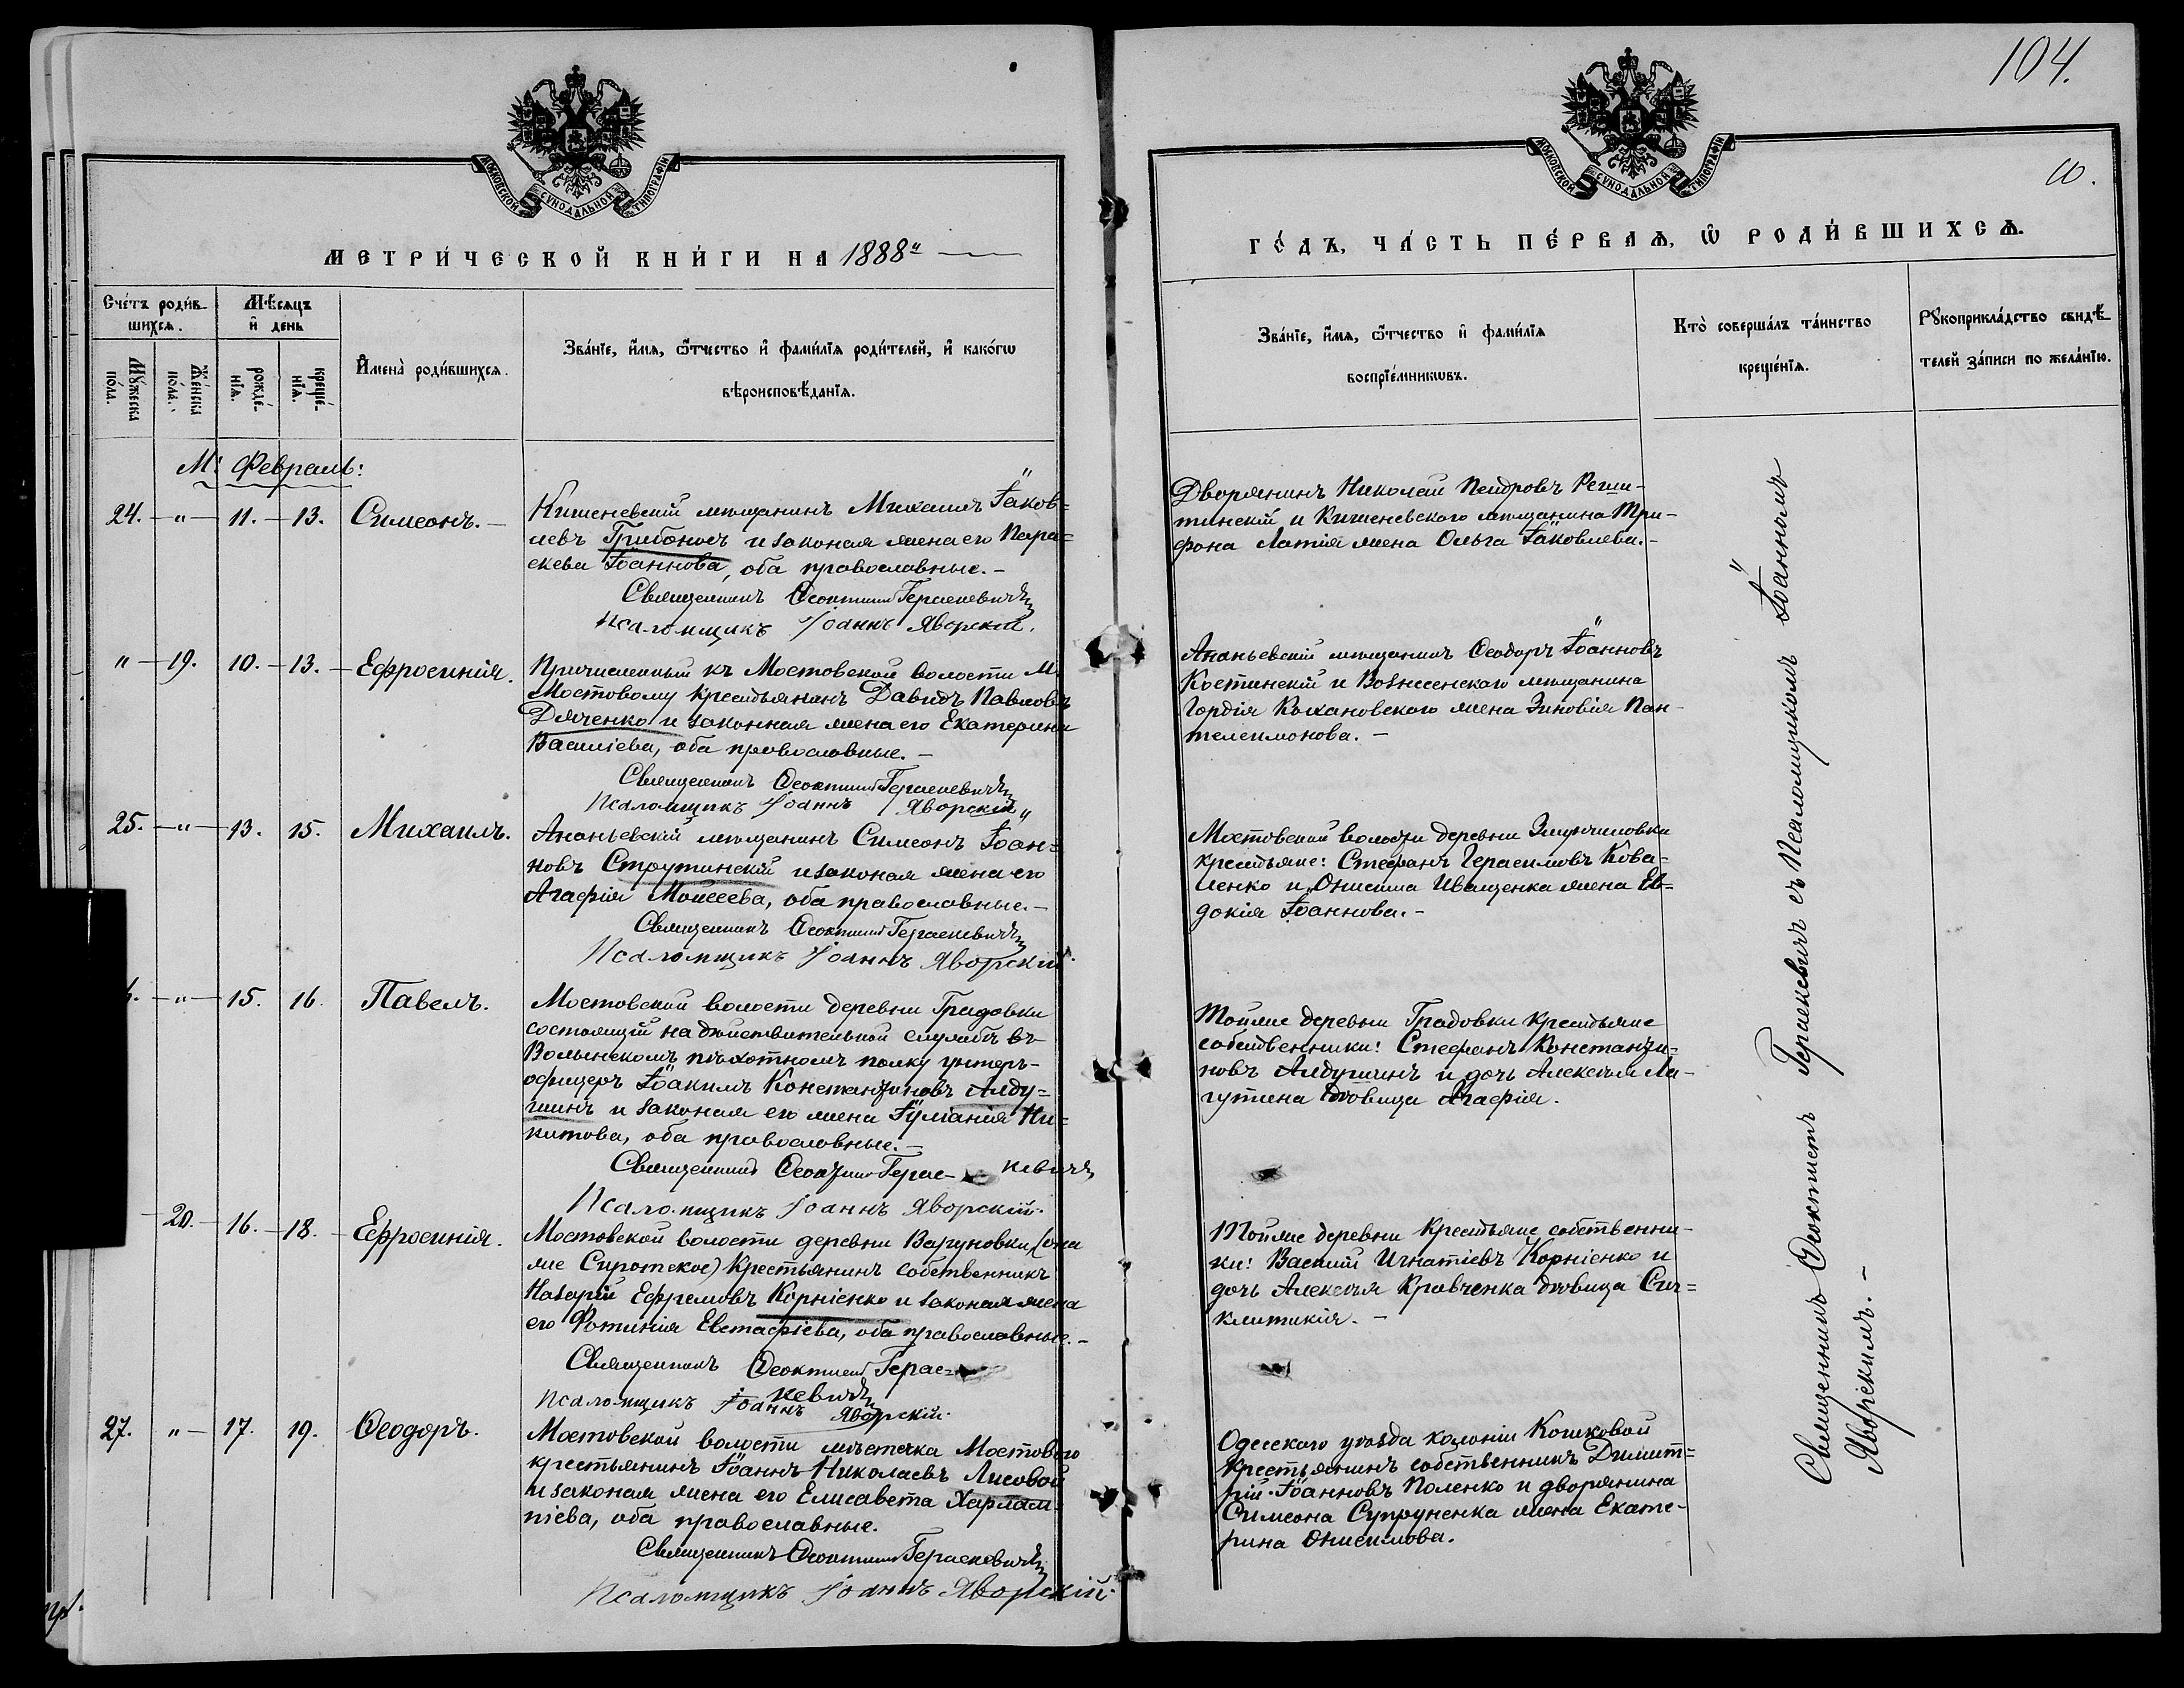 104.
10.
МОСКОВСКОЙ СѴНОДАЛЬНОЙ ТИПОГРАФІИ
МОСКОВСКОЙ СѴНОДАЛЬНОЙ ТИПОГРАФІИ
МЕТРИ́ЧЕСКОЙ КНИ́ГИ НА 1888й
ГО́ДЪ, ЧА́СТЬ ПЕ́РВАѦ, Ѿ РОДИ́ВШИХСѦ.
Сче́тъ роди́в-
шихсѧ.
Мꙋ́жеска по́ла.
Же́нска по́ла.
Мѣ́сѧцъ
и҆ день
рожде́-
нїѧ.
креще́-
нїѧ.
И҆мена̀ роди́вшихсѧ.
Зва́нїе, и҆́мѧ, ѻ҆́тчество и҆ фами́лїѧ роди́телей, и҆ како́гѡ
вѣроисповѣ́данїѧ.
Зва́нїе, и҆́мѧ, ѻ҆́тчество и҆ фами́лїѧ
воспрїе́мникѡвъ.
Кто̀ соверша́лъ та́инство
креще́нїѧ.
Рꙋкоприкла́дство свидѣ́-
телей за́писи по жела́нїю.
М: Февраль:
24. — " — 11. — 13. Симеонъ. —
Кишеневскій мѣщанинъ Михаилъ Іаков=
левъ Грибоносъ и законая жена его Пара=
скева Іоаннова, оба православные. —
Священникъ Ѳеоктистъ Гераскевичъ
Псаломщикъ Іоаннъ Яворскій.
Дворянинъ Николай Петровъ Реши-
тинскій и Кишеневского мѣщанина Три-
фона Латія жена Ольга Іаковлева. —
" — 19. 10. — 13. — Ефросинія.
Причисленный къ Мостовской волости М.
Мостовому крестьянинъ Давидъ Павловъ
Дяченко и законная жена его Екатерина
Василіева, оба православные. —
Священникъ Ѳеоктистъ Гераскевичъ
Псаломщикъ Іоаннъ Яворскій
Ананьевскій мѣщанинъ Ѳеодоръ Іоанновъ
Костинскій и Вознесенскаго мѣщанина
Гордія Кохановского жена Зиновія Пан-
телеимонова. —
25. — " — 13. 15. Михаилъ.
Ананьевскій мѣщанинъ Симеонъ Іоан=
новъ Струтинскій и законая жена его
Агафія Моисеева, оба православные. —
Священникъ Ѳеоктистъ Гераскевичъ
Псаломщикъ Іоаннъ Яворскій.
Мостовской волости деревни
крестьяне: Стефанъ Герасимовъ Кова=
ленко и Онисима Иващенка жена Ев=
докія Іоаннова. —
— " — 15. 16. Павелъ.
Мостовской волости деревни Градовки
состоящій на дѣйствительной службѣ въ
Волынскомъ пѣхотномъ полку унтеръ-
офицеръ Іоакимъ Константиновъ Алду=
шинъ и законая его жена Іуліанія Ни=
китова, оба православные. —
Священникъ Ѳеоктистъ Герас- кевичъ
Псаломщикъ Іоаннъ Яворскій.
Тойже деревни Градовки крестьяне
собственники: Стефанъ Константи=
новъ Алдушинъ и дочь Алексѣя Ла-
гутина дѣвица Агафія.
— 20. — 16. — 18. — Ефросинія.
Мостовской волости деревни Варуновки (она
же Сиротское) крестьянинъ собственникъ
Назарій Ефремовъ Корніенко и законая жена
его Фотинія Евстафіева, оба православные. —
Священникъ Ѳеоктистъ Герас=
кевичъ
Псаломщикъ Іоаннъ Яворскій.
Тойже деревни крестьяне собственни-
ки: Василій Игнатіевъ Корніенко и
дочь Алексѣя Кравченка дѣвица Син=
клитикія. —
27. " — 17. 19. Ѳеодоръ.
Мостовской волости мѣстечка Мостового
крестьянинъ Іоаннъ Николаевъ Лисовой
и законая жена его Елисавета Харлам=
піева, оба православные.
Священникъ Ѳеоктистъ Гераскевичъ
Псаломщикъ Іоаннъ Яворскій.
Одесскаго уѣзда колоніи Кошковой
крестьянинъ собственникъ Димит=
рій Іоанновъ Поленко и дворянина
Симеона Супруненка жена Екате-
рина Онисимова.
Священникъ Ѳеоктистъ Гераскевичъ съ Псаломщикомъ Іоанномъ
Яворскимъ. —